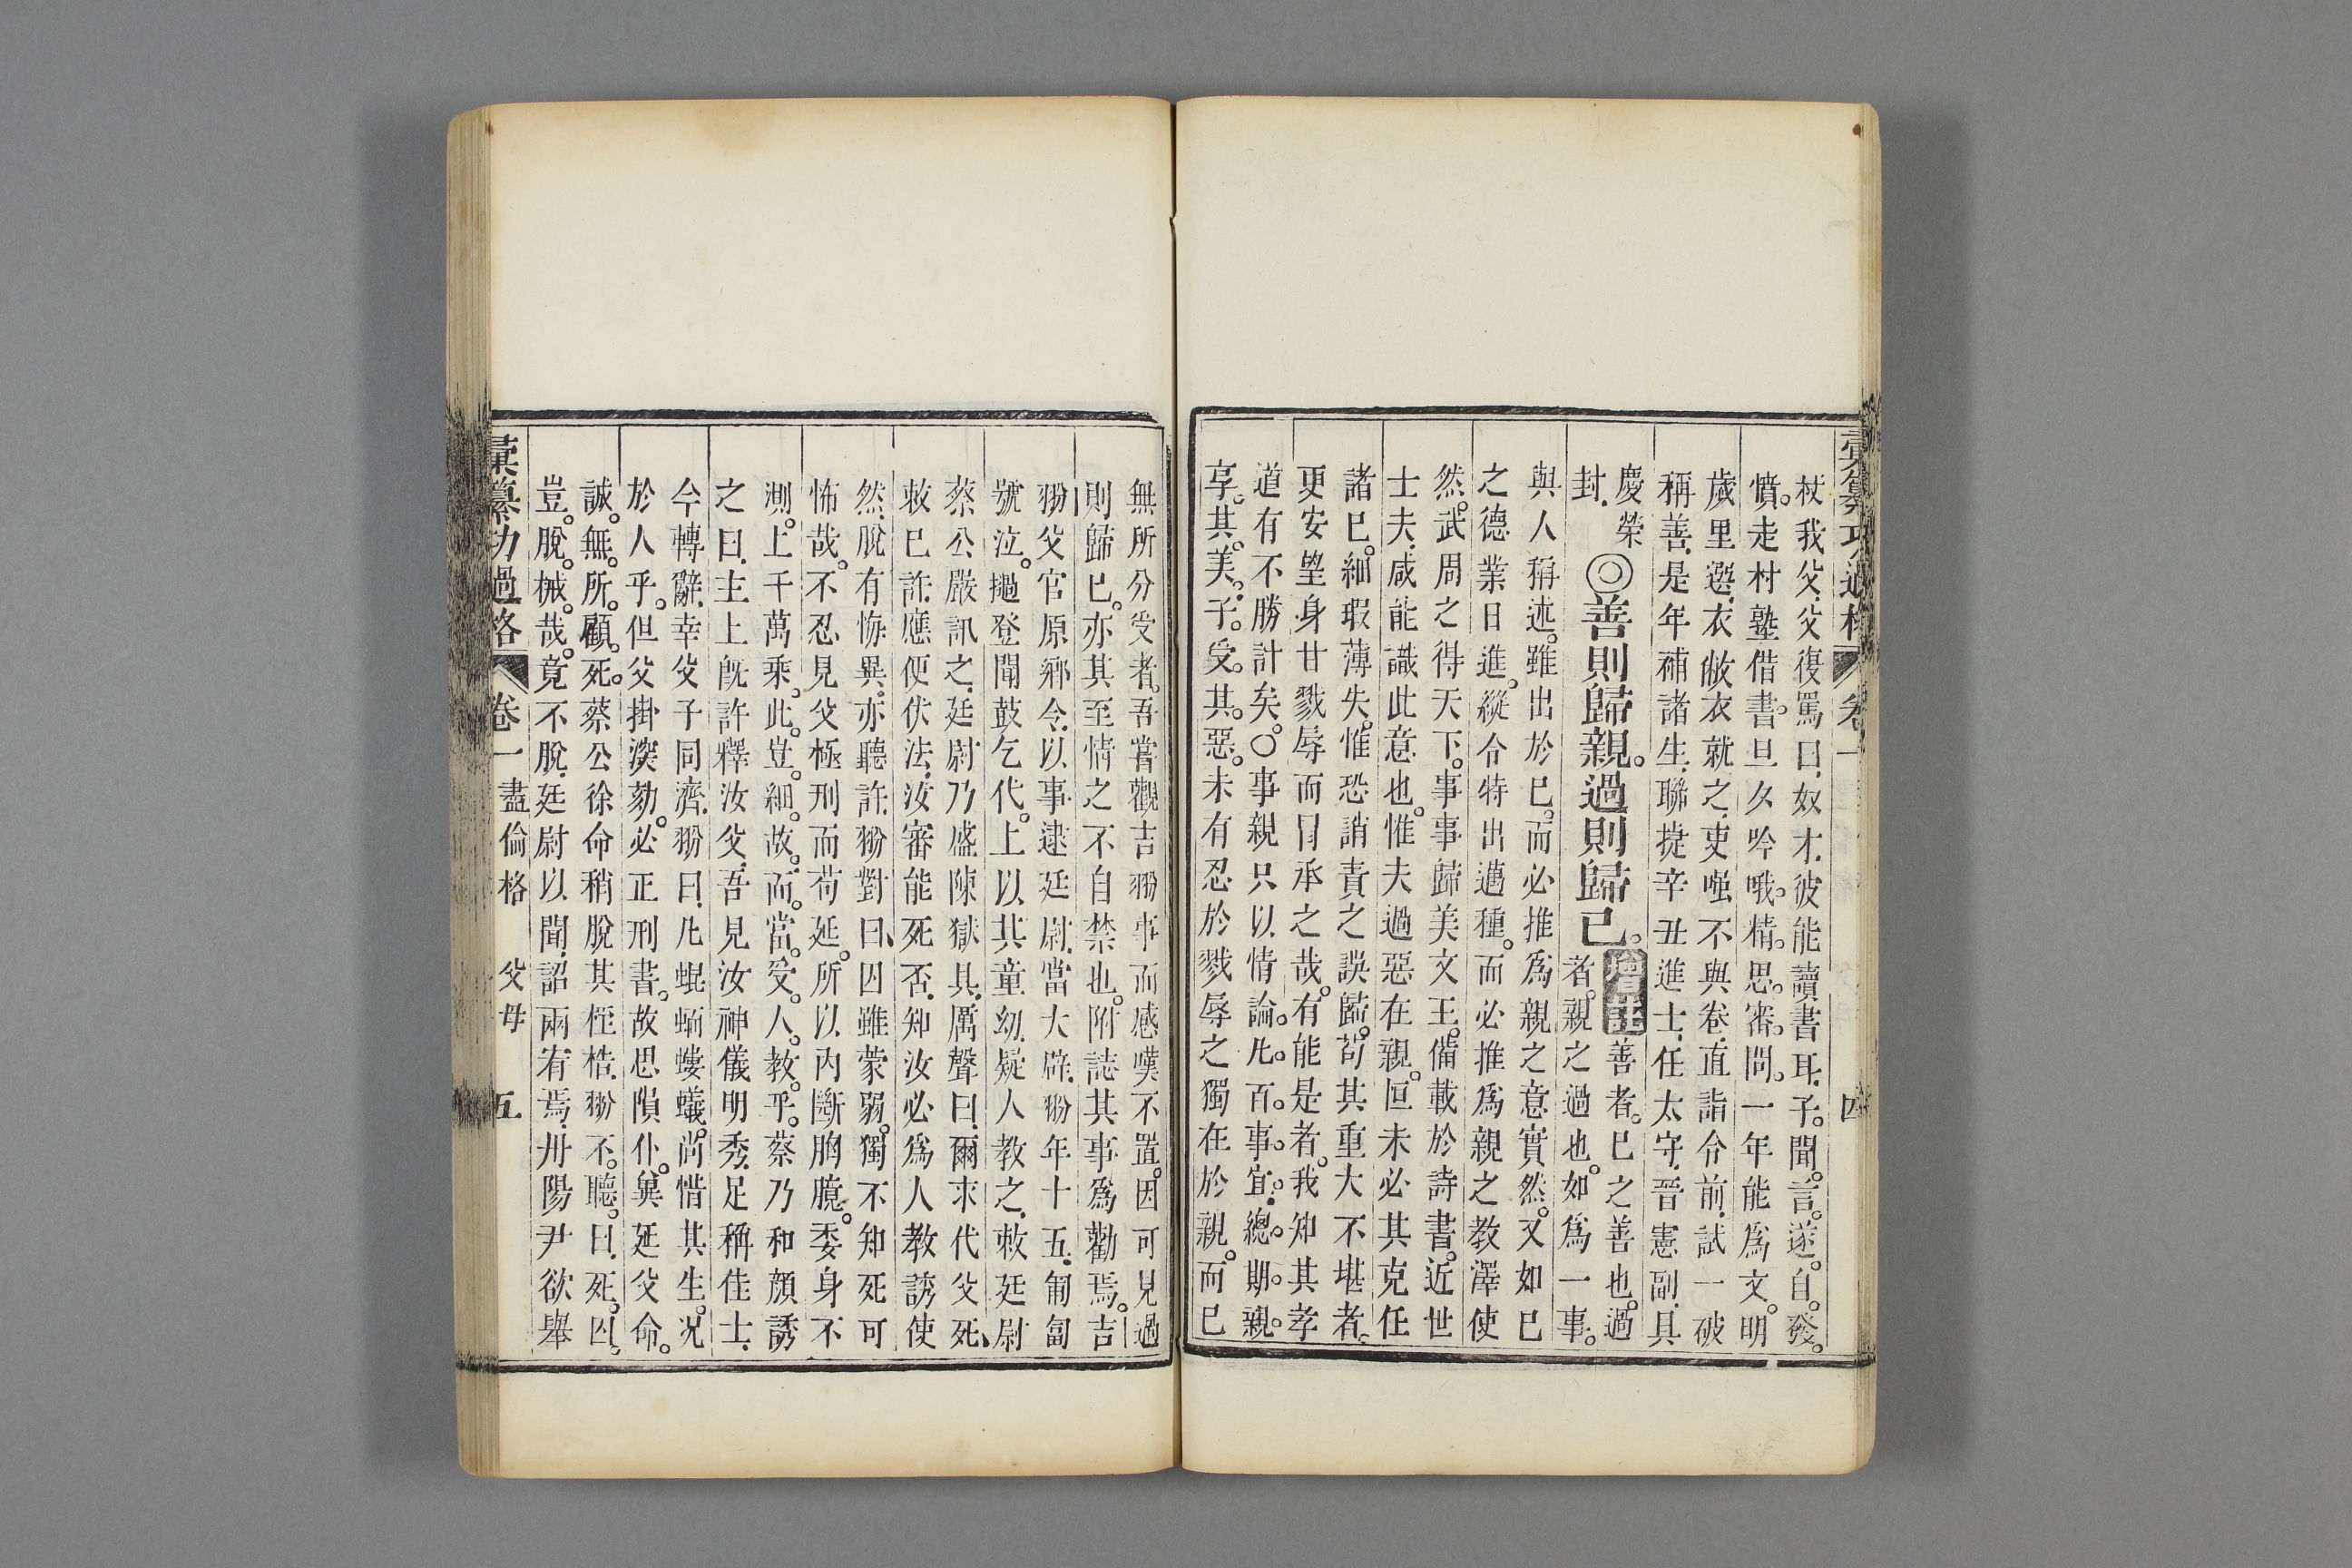 彙纂功過格 卷一 四
杖我父父復罵曰奴才彼能讀書耳子聞言遂自發
憤走村塾借書旦夕吟哦精思審問一年能爲文明
歲里選衣敝衣就之吏嗤不與卷直詣令前試一破
稱善是年補諸生聯捷辛丑進士任太守晉憲副具
慶榮
封
◎善則歸親過則歸己 增註 善者己之善也過
者親之過也如爲一事
與人稱述雖出於己而必推爲親之意實然又如己
之德業日進縱令特出邁種而必推爲親之教澤使
然武周之得天下事事歸美文王備載於詩書近世
士夫咸能識此意也惟夫過惡在親恒未必其克任
諸己細瑕薄失惟恐誚責之誤歸苟其重大不堪者
更安望身甘戮辱而冒承之哉有能是者我知其孝
道有不勝計矣○事親只以情論凡百事宜總期親
享其美子受其惡未有忍於戮辱之獨在於親而己
無所分受者吾嘗觀吉翂事而感嘆不置因可見過
則歸己亦其至情之不自禁也附誌其事爲勸焉吉
翂父官原鄉令以事逮廷尉當大辟翂年十五匍匐
號泣撾登聞鼓乞代上以其童幼疑人教之敕廷尉
蔡公嚴訊之廷尉乃盛陳獄具厲聲曰爾求代父死
敕已許應便伏法汝審能死否知汝必爲人教誘使
然脫有悔異亦聽許翂對曰囚雖蒙弱獨不知死可
怖哉不忍見父極刑而苟延所以內斷胸臆委身不
測上干萬乘此豈細故而當受人教乎蔡乃和顏誘
之曰主上旣許釋汝父吾見汝神儀明秀足稱佳士
今轉辭幸父子同濟翂曰凡蜫蝻螻蟻尚惜其生况
於人乎但父掛深劾必正刑書故思隕仆冀延父命
誠無所顧死蔡公徐命稍脫其桎梏翂不聽曰死囚
豈脫械哉竟不脫廷尉以聞詔兩宥焉丹陽尹欲舉
彙纂功過格 卷一 盡倫格 父母 五